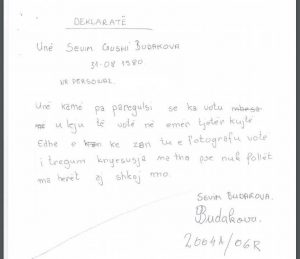 DEKLARATË
Unë Sevim Gushi Budakova
31-08 1980.
NR PERSONAL.
Unë kamë pa paregullsi se ka votu
u leju të votë në emër tjetër kujtë
Edhe e ke zan tu e fotografu votë
i tregum kryesusja ma tha pse nuk follët
ma heret aj shkoj mo.
SEVIM BUDAKOVA.
Budakova.